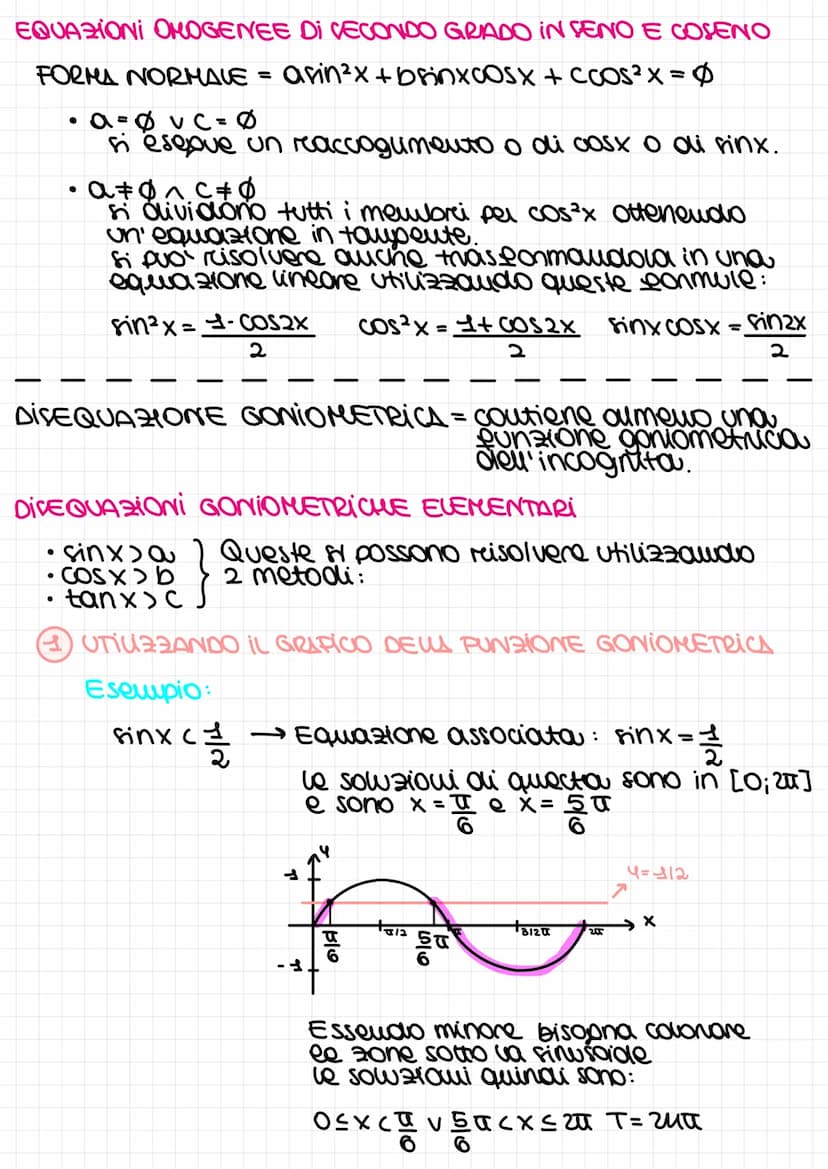 EQUAZIONI OMOGENEE DI SECONDO GRADO IN SENO E COSENO
FORMA NORMALE = asin²x + bsinxcosx + ccos²x = Ø
• a = Ø ∨ c = Ø
si esegue un raccoglimento o di cosx o di sinx.
• a ≠ Ø ∧ c ≠ Ø
si dividono tutti i membri per cos²x ottenendo
un'equazione in tangente.
si puo' risolvere anche trasformandola in una
equazione lineare utilizzando queste formule:
sin²x = 1-cos2x/2 cos²x = 1+cos2x/2 sinxcosx = sin2x/2
DISEQUAZIONE GONIOMETRICA = contiene almeno una
funzione goniometrica
dell'incognita.
DISEQUAZIONI GONIOMETRICHE ELEMENTARI
• sinx > a
• cosx > b
• tanx > c
} Queste si possono risolvere utilizzando
2 metodi:
① UTILIZZANDO IL GRAFICO DELLA FUNZIONE GONIOMETRICA
Esempio:
sinx < 1/2 → Equazione associata: sinx = 1/2
le soluzioni di questa sono in [0; 2π]
e sono x = π/6 e x = 5/6 π
y
1
y = 1/2
x
π/6
π/2
5/6 π
π
3/2π
2π
-1
Essendo minore bisogna colorare
le zone sotto la sinusoide
le soluzioni quindi sono:
0 ≤ x < π/6 ∨ 5/6 π < x ≤ 2π T = 2kπ